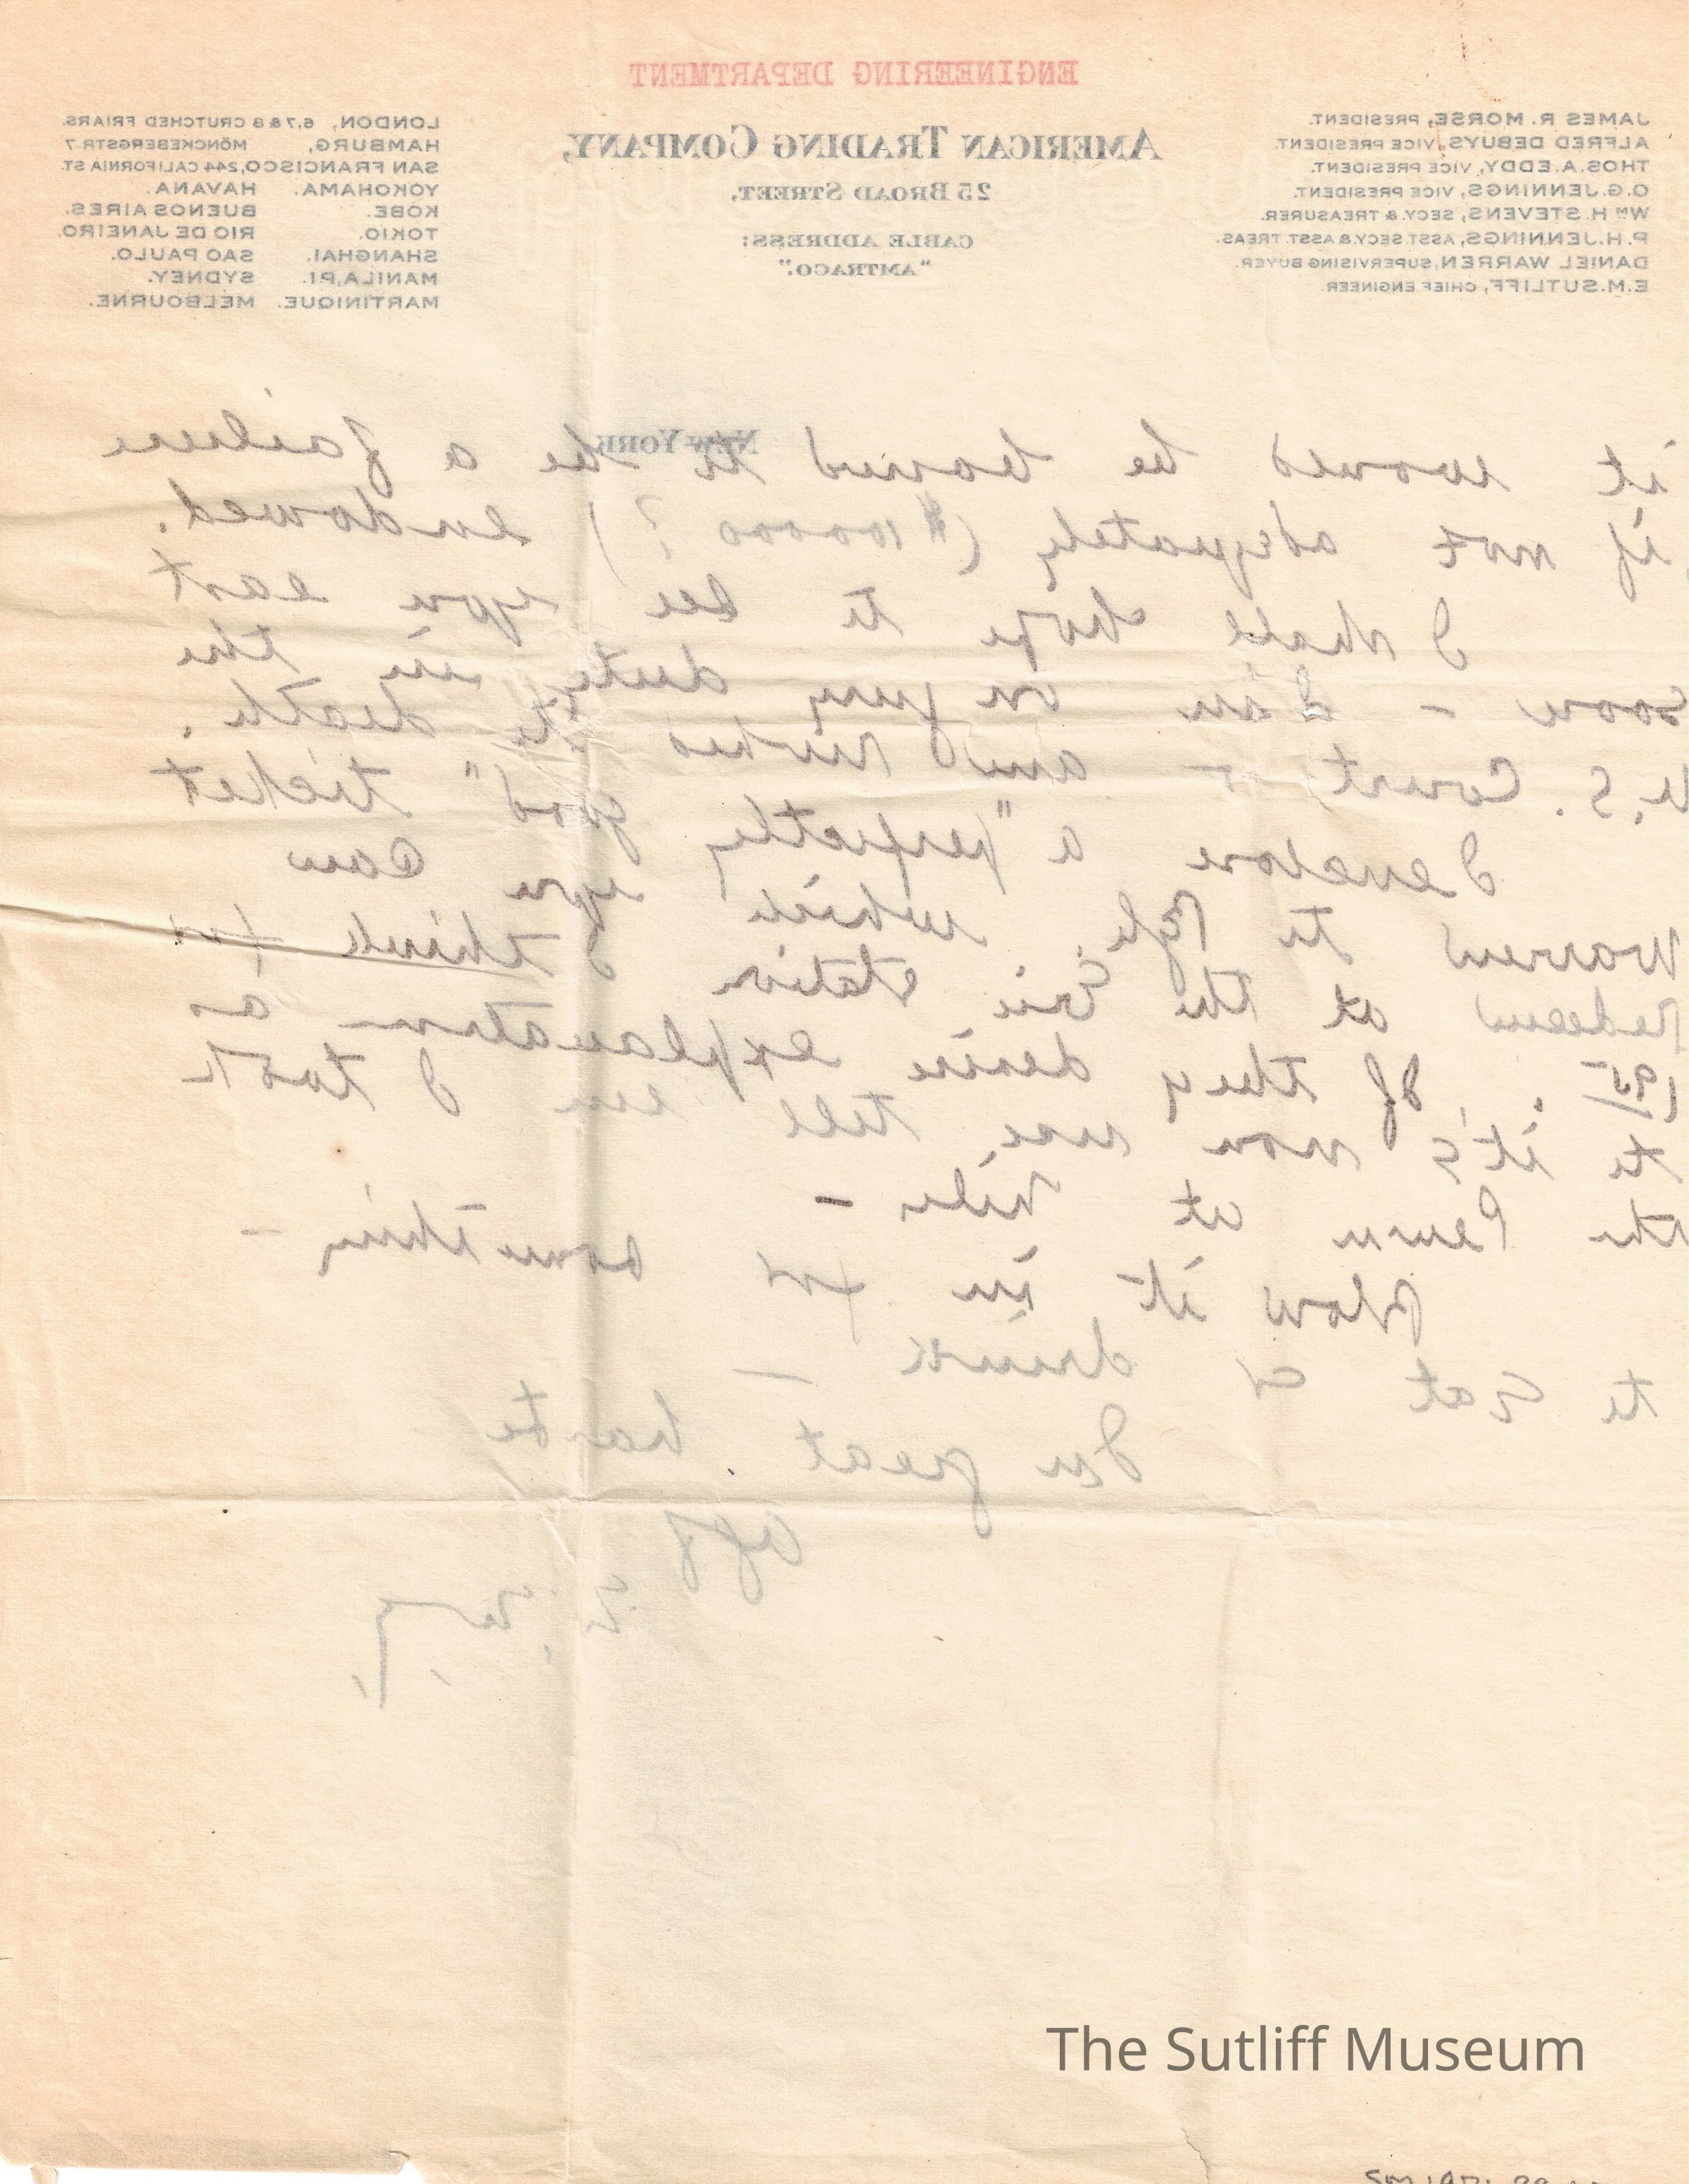 ENGINEERING DEPARTMENT
AMERICAN TRADING COMPANY,
25 BROAD STREET,
CABLE ADDRESS:
"AMTRACO."
JAMES R. MORSE, PRESIDENT.
ALFRED DEBUYS, VICE PRESIDENT.
THOS. A. EDDY, VICE PRESIDENT.
O.G. JENNINGS, VICE PRESIDENT.
WM H. STEVENS, SECY. & TREASURER.
P.H. JENNINGS, ASST. SECY. & ASST. TREAS.
DANIEL WARREN, SUPERVISING BUYER.
E.M. SUTLIFF, CHIEF ENGINEER.
LONDON, 6, 7 & 8 CRUTCHED FRIARS.
HAMBURG, MÖNCKEBERGSTR. 7
SAN FRANCISCO, 244 CALIFORNIA ST.
YOKOHAMA. HAVANA.
KOBE. BUENOS AIRES.
TOKIO. RIO DE JANEIRO.
SHANGHAI. SAO PAULO.
MANILA, P.I. SYDNEY.
MARTINIQUE. MELBOURNE.
NEW YORK
it would be bound to be a failure
if not adequately ($100000 ?) endowed.
I shall hope to see you east
soon - I'm on jury duty in the
U.S. Court - and rushed to death.
I enclose a "perfectly good" ticket
Warren to which you can
redeem at the Erie Station I think for
If they desire explanation as
to it's non use, tell em I took
the Penn at Niles -
Blow it in for something -
to eat or drink -
In great haste
aff
E.
The Sutliff Museum